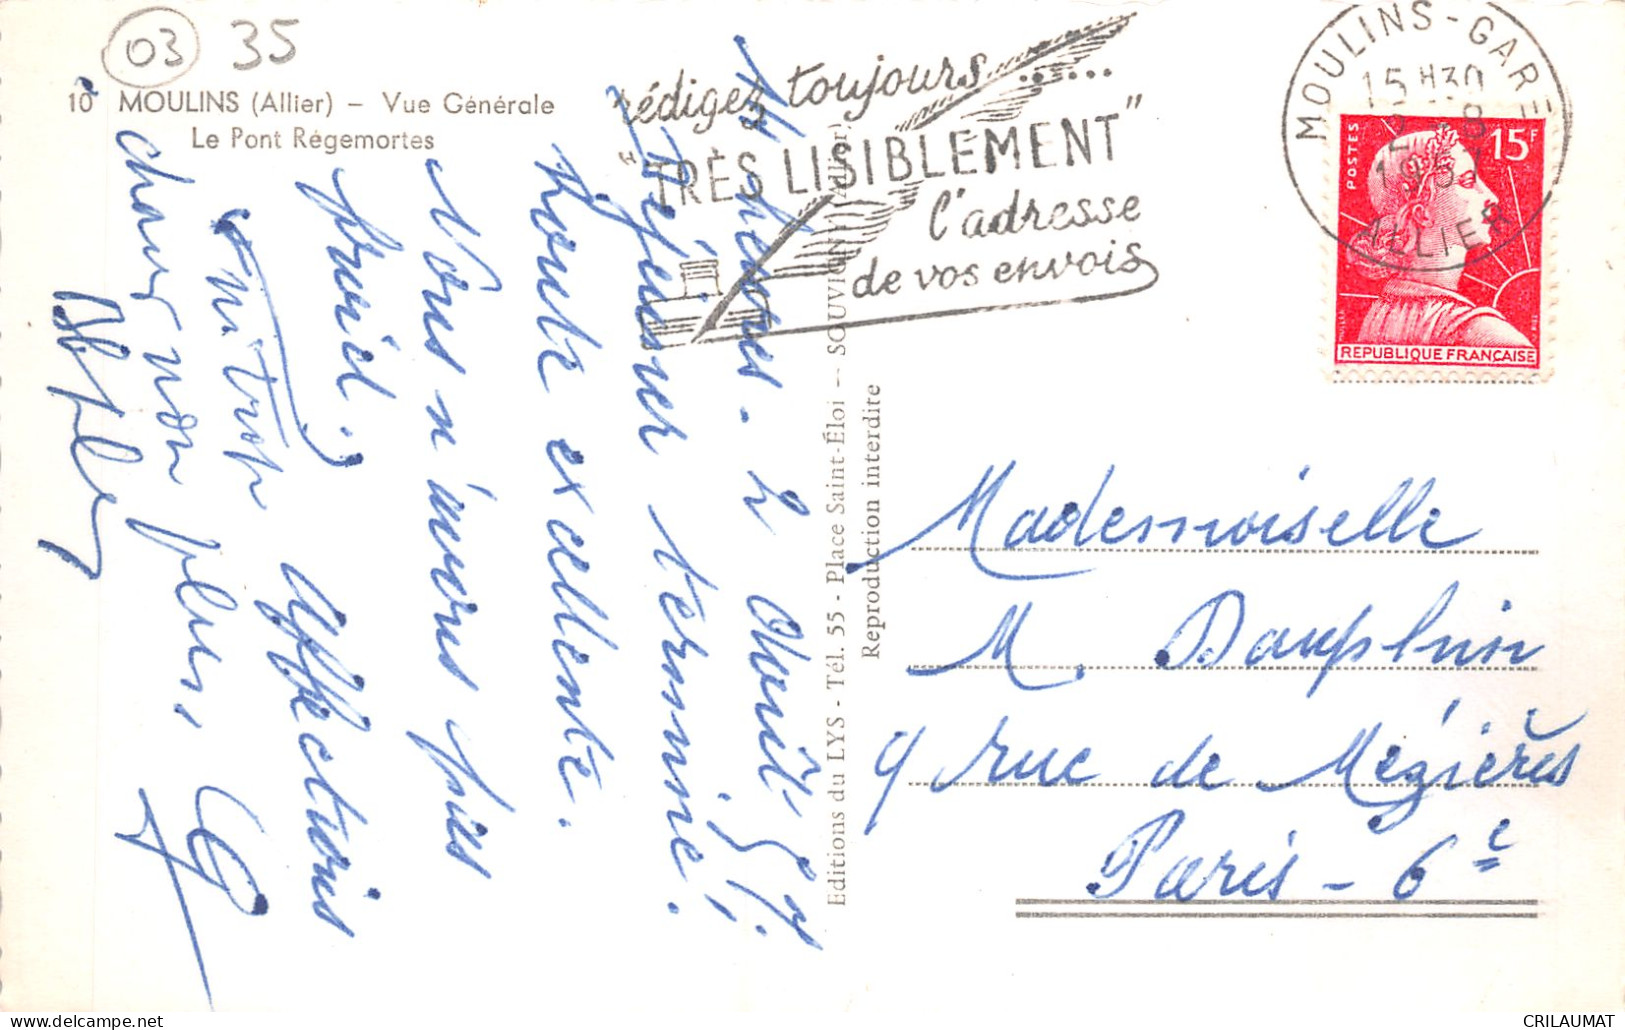 03 35
10 MOULINS (Allier) – Vue Générale
Le Pont Régemortes
Rédigez toujours......
"TRÈS LISIBLEMENT"
l'adresse
de vos envois
MOULINS - GARE
15H30
2 - 8
1957
ALLIER
POSTES
15F
REPUBLIQUE FRANÇAISE
14 heures - 2 Août 57
Déjeuner terminé!
Route excellente.
Nous n'avons pas
Affections
Editions du LYS - Tél. 55 - Place Saint-Éloi – SOUVIGNY (Allier)
Reproduction interdite
Mademoiselle
M. Dauphin
9 rue de Mézières
Paris - 6e
CRILAUMAT
https://www.delcampe.net